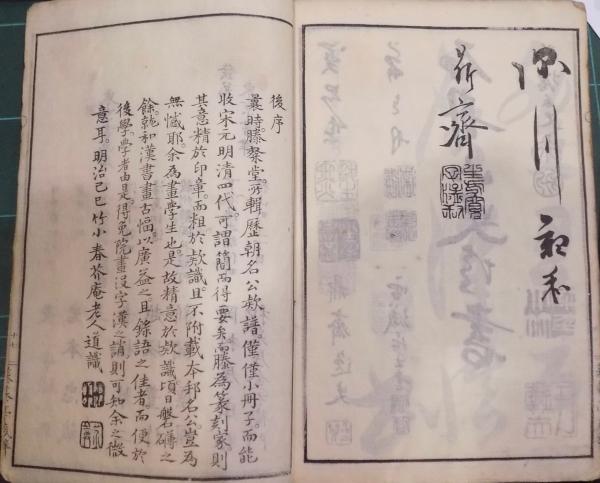 後序
曩時。滕粲堂所輯歷朝名公欵譜。僅僅小冊子。而能
收宋元明清四代。可謂簡而得要矣。而滕為篆刻家。則
其意精於印章。而粗於欵識。且不附載本邦名公。豈為
無憾耶。余為畫學生也。是故精意於欵識。頃日盤礴之
餘。就和漢書畫古幅。以廣益之。且錄語之佳者。而便於
後學。學者由是。得免院畫没字漢之誚。則可知余之微
意耳。明治己巳竹小春芥庵老人道識